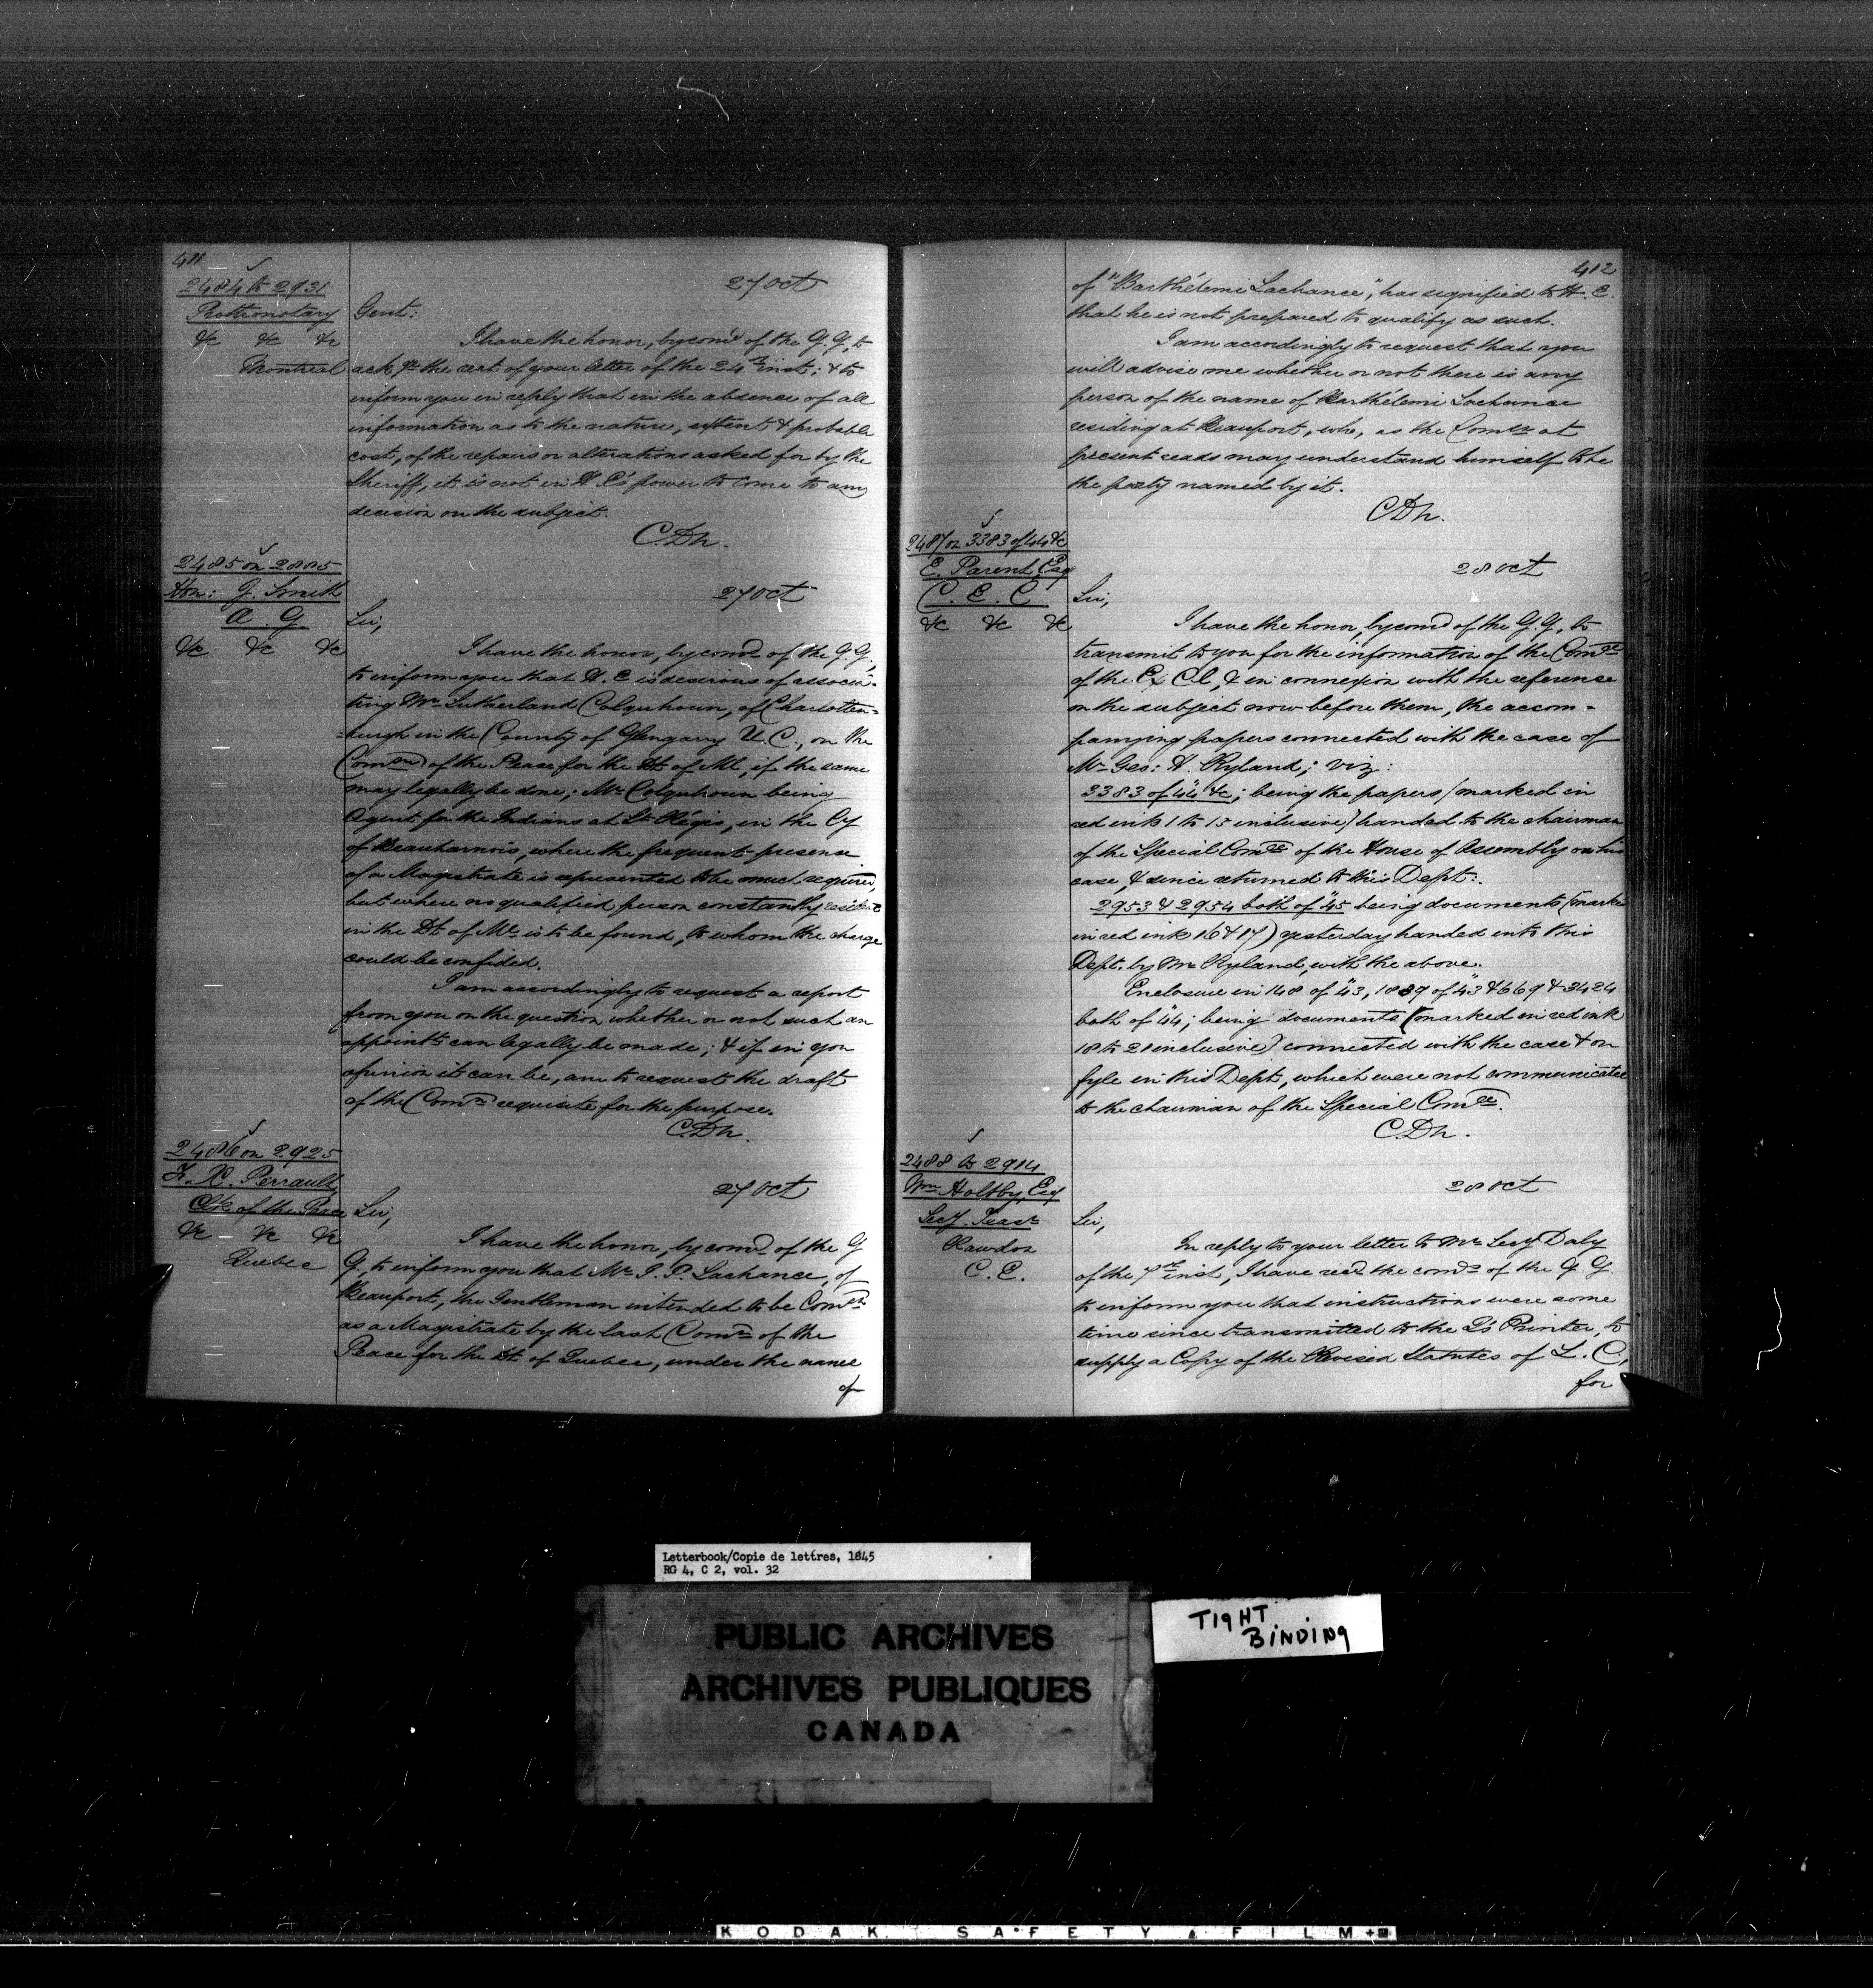 411
2484 to 2931
Prothonotary
&c &c &c
Montreal
27 Oct
Gent:
I have the honor, by comd of the G.G., to
ack. ge the rect of your letter of the 24th inst: & to
inform you in reply that in the absence of all
information as to the nature, extent & probable
cost, of the repairs or alterations asked for by the
Sheriff, it is not in H. E's power to come to any
decision on the subject.
C.Dn.
2485 on 2885
Hon: J. Smith
A. G.
&c &c &c
27 Oct
Sir,
I have the honor, by comd of the G.G.,
to inform you that H. E is desirous of associa-
ting Mr Sutherland Colquhoun, of Charlotten=
=burgh in the County of Glengarry U.C., on the
Comon of the Peace for the Dt of Ml, if the same
may legally be done; Mr Colquhoun being
Agent for the Indians at St Régis, in the Cy
of Beauharnois, where the frequent presence
of a Magistrate is represented to be much required,
but where no qualified person constantly resident
in the Dt of Ml is to be found, to whom the charge
could be confided.
I am accordingly to request a report
from you on the question whether or not such an
appointt can legally be made; & if in you
opinion it can be, am to request the draft
of the Comn requisite for the purpose.
C.Dn.
2486 on 2925
F. X. Perrault
Clk of the Peace
&c &c &c
Quebec
27 Oct
Sir,
I have the honor, by comd of the G
G., to inform you that Mr I. P. Lachance, of
Beauport, the Gentleman intended to be Comd
as a Magistrate by the last Comn of the
Peace for the Dt of Quebec, under the name
of
412
of "Barthélemi Lachance", has signified to H. E.
that he is not prepared to qualify as such.
I am accordingly to request that you
will advise me whether or not there is any
person of the name of Barthélemi Lachance
residing at Beauport, who, as the Comn at
present reads may understand himself to be
the party named by it.
C.Dn.
2487 on 3383 of 44 &c
E. Parent, Esq
C. E. C
&c &c &c
28 Oct
Sir,
I have the honor, by comd of the G.G., to
transmit to you for the information of the Comee
of the Ex Cl, & in connexion with the reference
on the subject now before them, the accom-
panying papers connected with the case of
Mr Geo: H. Ryland; viz:
3383 of "44" &c; being the papers (marked in
red ink 1 to 15 inclusive) handed to the chairman
of the Special Comee of the House of Assembly on his
case, & since returned to this Dept:.
2953 & 2954 both of "45 being documents (marked
in red ink 16 & 17) yesterday handed into this
Dept. by Mr Ryland, with the above.
Enclosure in 148 of "43, 1889 of "43 & 669 & 3424
both of "44; being documents (marked in red ink
18 to 21 inclusive) connected with the case & on
fyle in this Dept, which were not communicated
to the chairman of the Special Comee.
C.Dn.
2488 to 2914
Wm Holtby, Esq
Secy. Treasr
Rawdon
C. E.
28 Oct
Sir,
In reply to your letter to Mr Secy Daly
of the 7th inst, I have recd the comds of the G.G.
to inform you that instructions were some
time since transmitted to the Q's Printer, to
supply a Copy of the Revised Statutes of L. C.,
for
Letterbook/Copie de lettres, 1845
RG 4, C 2, vol. 32
PUBLIC ARCHIVES
ARCHIVES PUBLIQUES
CANADA
TIGHT
BINDING
KODAK SAFETY FILM